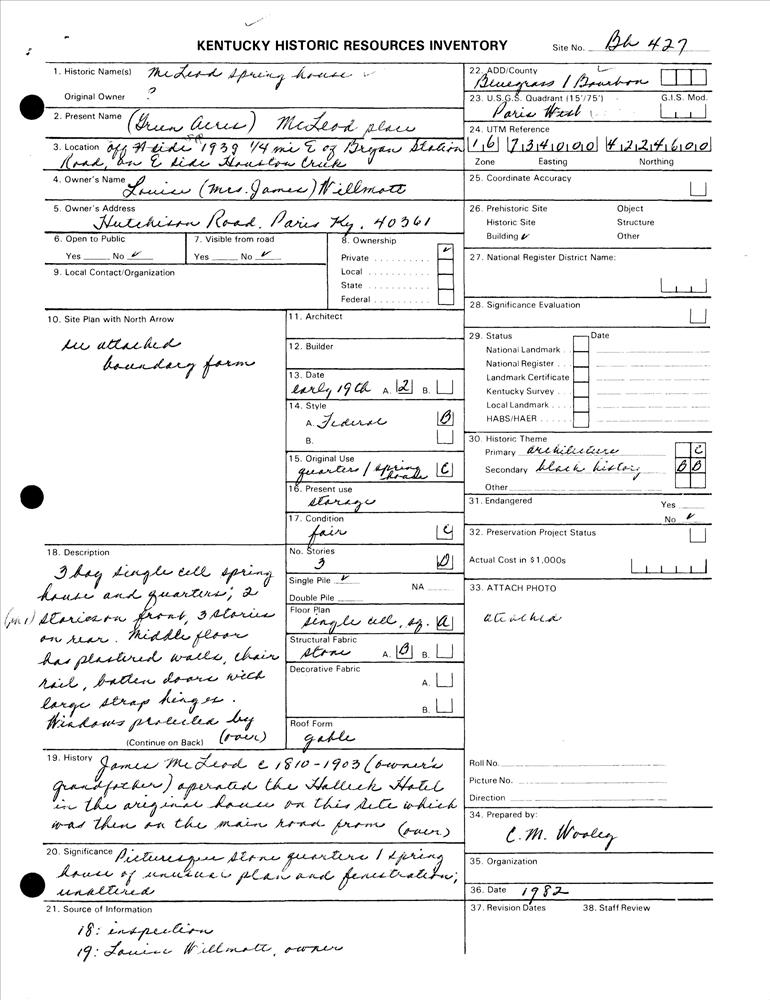 KENTUCKY HISTORIC RESOURCES INVENTORY
Site No. Bb 427
1. Historic Name(s) McLeod spring house
Original Owner ?
2. Present Name (Green Acres) McLeod place
3. Location off W side 1939 1/4 mi E of Bryan Station
Road, on E side Houston Creek
4. Owner's Name Louise (Mrs. James) Willmott
5. Owner's Address
Hutchison Road. Paris Ky. 40361
6. Open to Public
Yes No ✓
7. Visible from road
Yes No ✓
8. Ownership
Private ✓
Local
State
Federal
9. Local Contact/Organization
10. Site Plan with North Arrow
see attached
boundary form
11. Architect
12. Builder
13. Date
early 19th A. 2 B.
14. Style
A. Federal B
B.
15. Original Use
quarters / spring
house C
16. Present use
storage
17. Condition
fair C
No. Stories
3 D
Single Pile ✓ NA
Double Pile
Floor Plan
single cell, sq. A
Structural Fabric
stone A. B B.
Decorative Fabric
A.
B.
Roof Form
gable
18. Description
3 bay single cell spring
house and quarters; 2
stories on front, 3 stories
on rear. Middle floor
has plastered walls, chair
rail, batten doors with
large strap hinges.
Windows protected by
(Continue on Back) (over)
19. History James McLeod c 1810-1903 (owner's
grandfather) operated the Halleck Hotel
in the original house on this site which
was then on the main road from (over)
20. Significance Picturesque stone quarters / spring
house of unusual plan and fenestration;
unaltered
21. Source of Information
18: inspection
19: Louise Willmott, owner
22. ADD/County
Bluegrass / Bourbon
23. U.S.G.S. Quadrant (15'/75') G.I.S. Mod.
Paris West
24. UTM Reference
16 734000 4224600
Zone Easting Northing
25. Coordinate Accuracy
26. Prehistoric Site Object
Historic Site Structure
Building ✓ Other
27. National Register District Name:
28. Significance Evaluation
29. Status Date
National Landmark
National Register
Landmark Certificate
Kentucky Survey
Local Landmark
HABS/HAER
30. Historic Theme
Primary architecture C
Secondary black history B B
Other
31. Endangered Yes
No ✓
32. Preservation Project Status
Actual Cost in $1,000s
33. ATTACH PHOTO
attached
Roll No.
Picture No.
Direction
34. Prepared by:
C. M. Wooley
35. Organization
36. Date 1982
37. Revision Dates 38. Staff Review